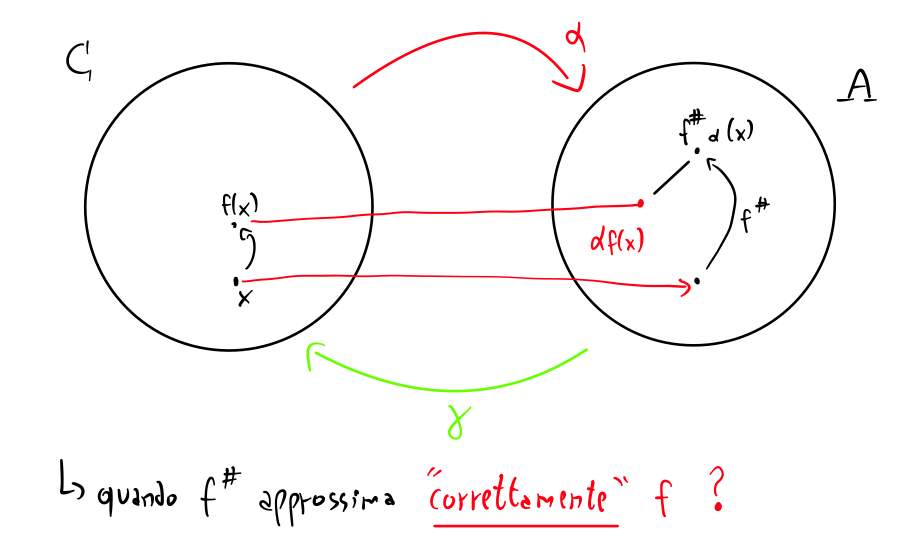 C
α
A
f# α(x)
f(x)
f#
αf(x)
x
γ
↳ quando f# approssima "correttamente" f ?